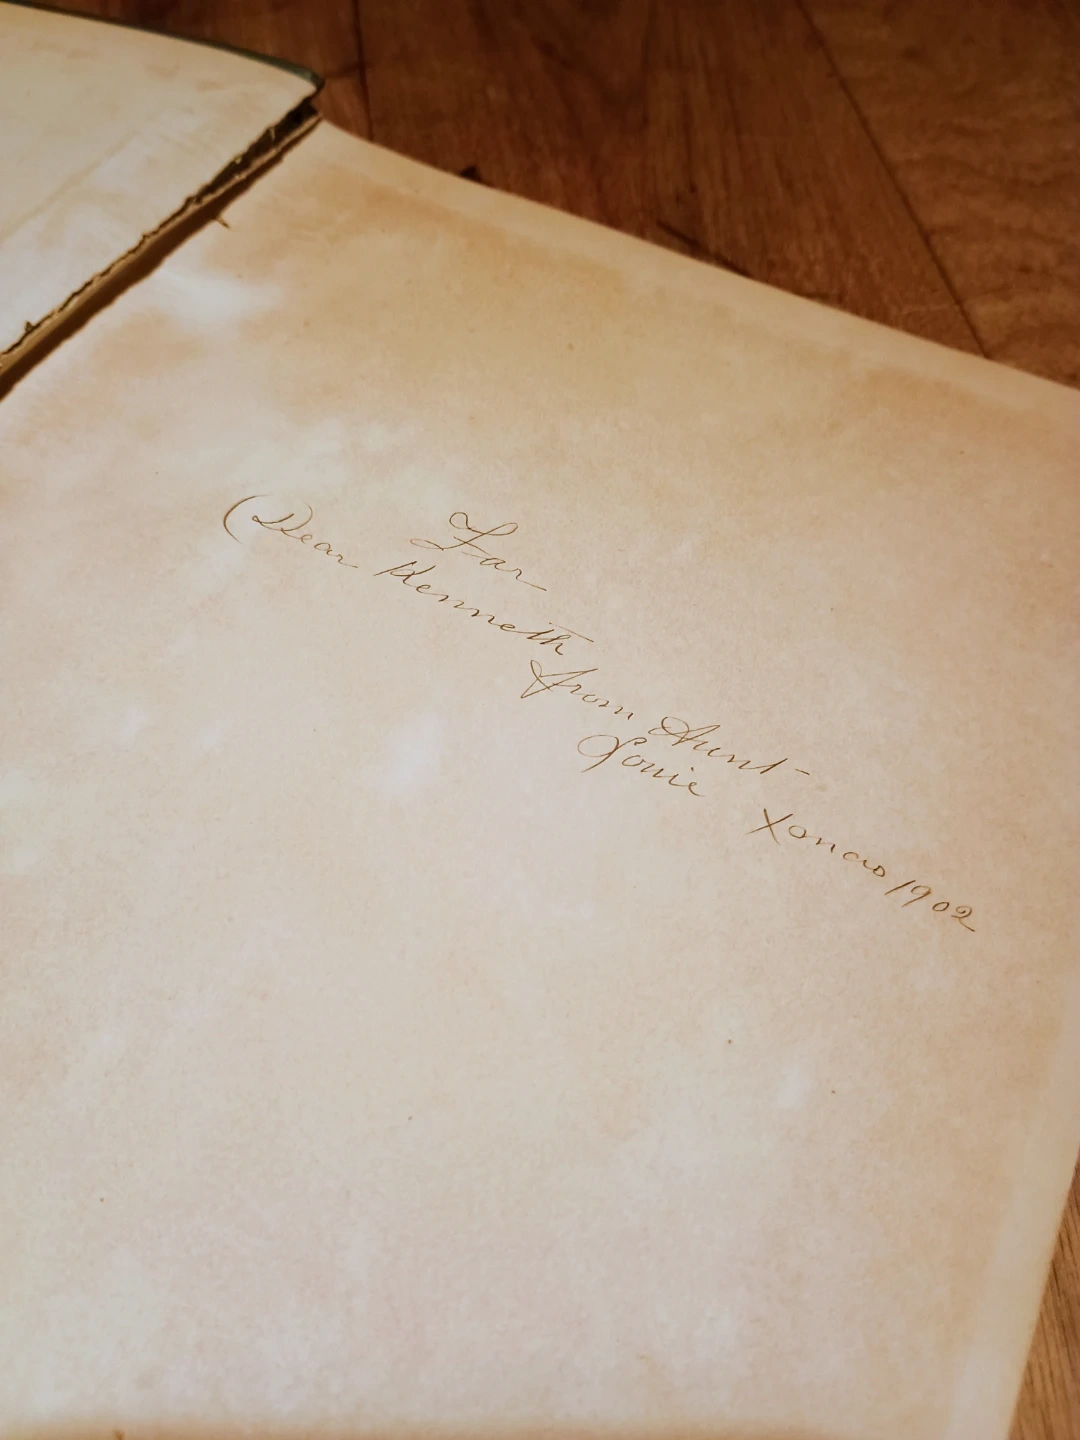 For
(Dear Kenneth
from Aunt
Louie Xmas 1902